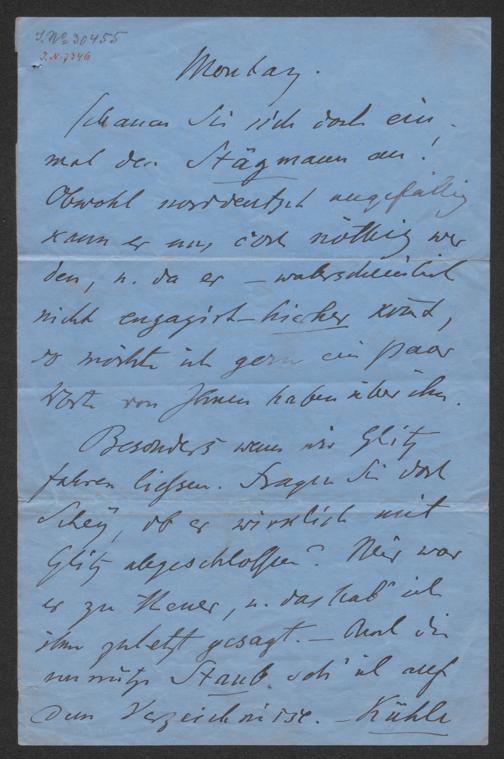 I.Nº 30455
I.N. 7346
Montag.
Schauen Sie sich doch ein-
mal den Stägmann an!
Obwohl norddeutsch
kann er uns doch nöthig wer
den, u. da er – wahrscheinlich
nicht engagirt – hierher komt,
so möchte ich gern ein paar
Worte von Ihnen haben über ihn.
Besonders wenn wir Glitz
fahren liessen. Fragen Sie doch
ob er wirklich mit
Glitz abgeschlossen? Mir war
er zu theuer, u. das hab' ich
ihm zuletzt gesagt. – Auch die
unnütze Staub seh' ich auf
dem Verzeichnisse. – Kühle